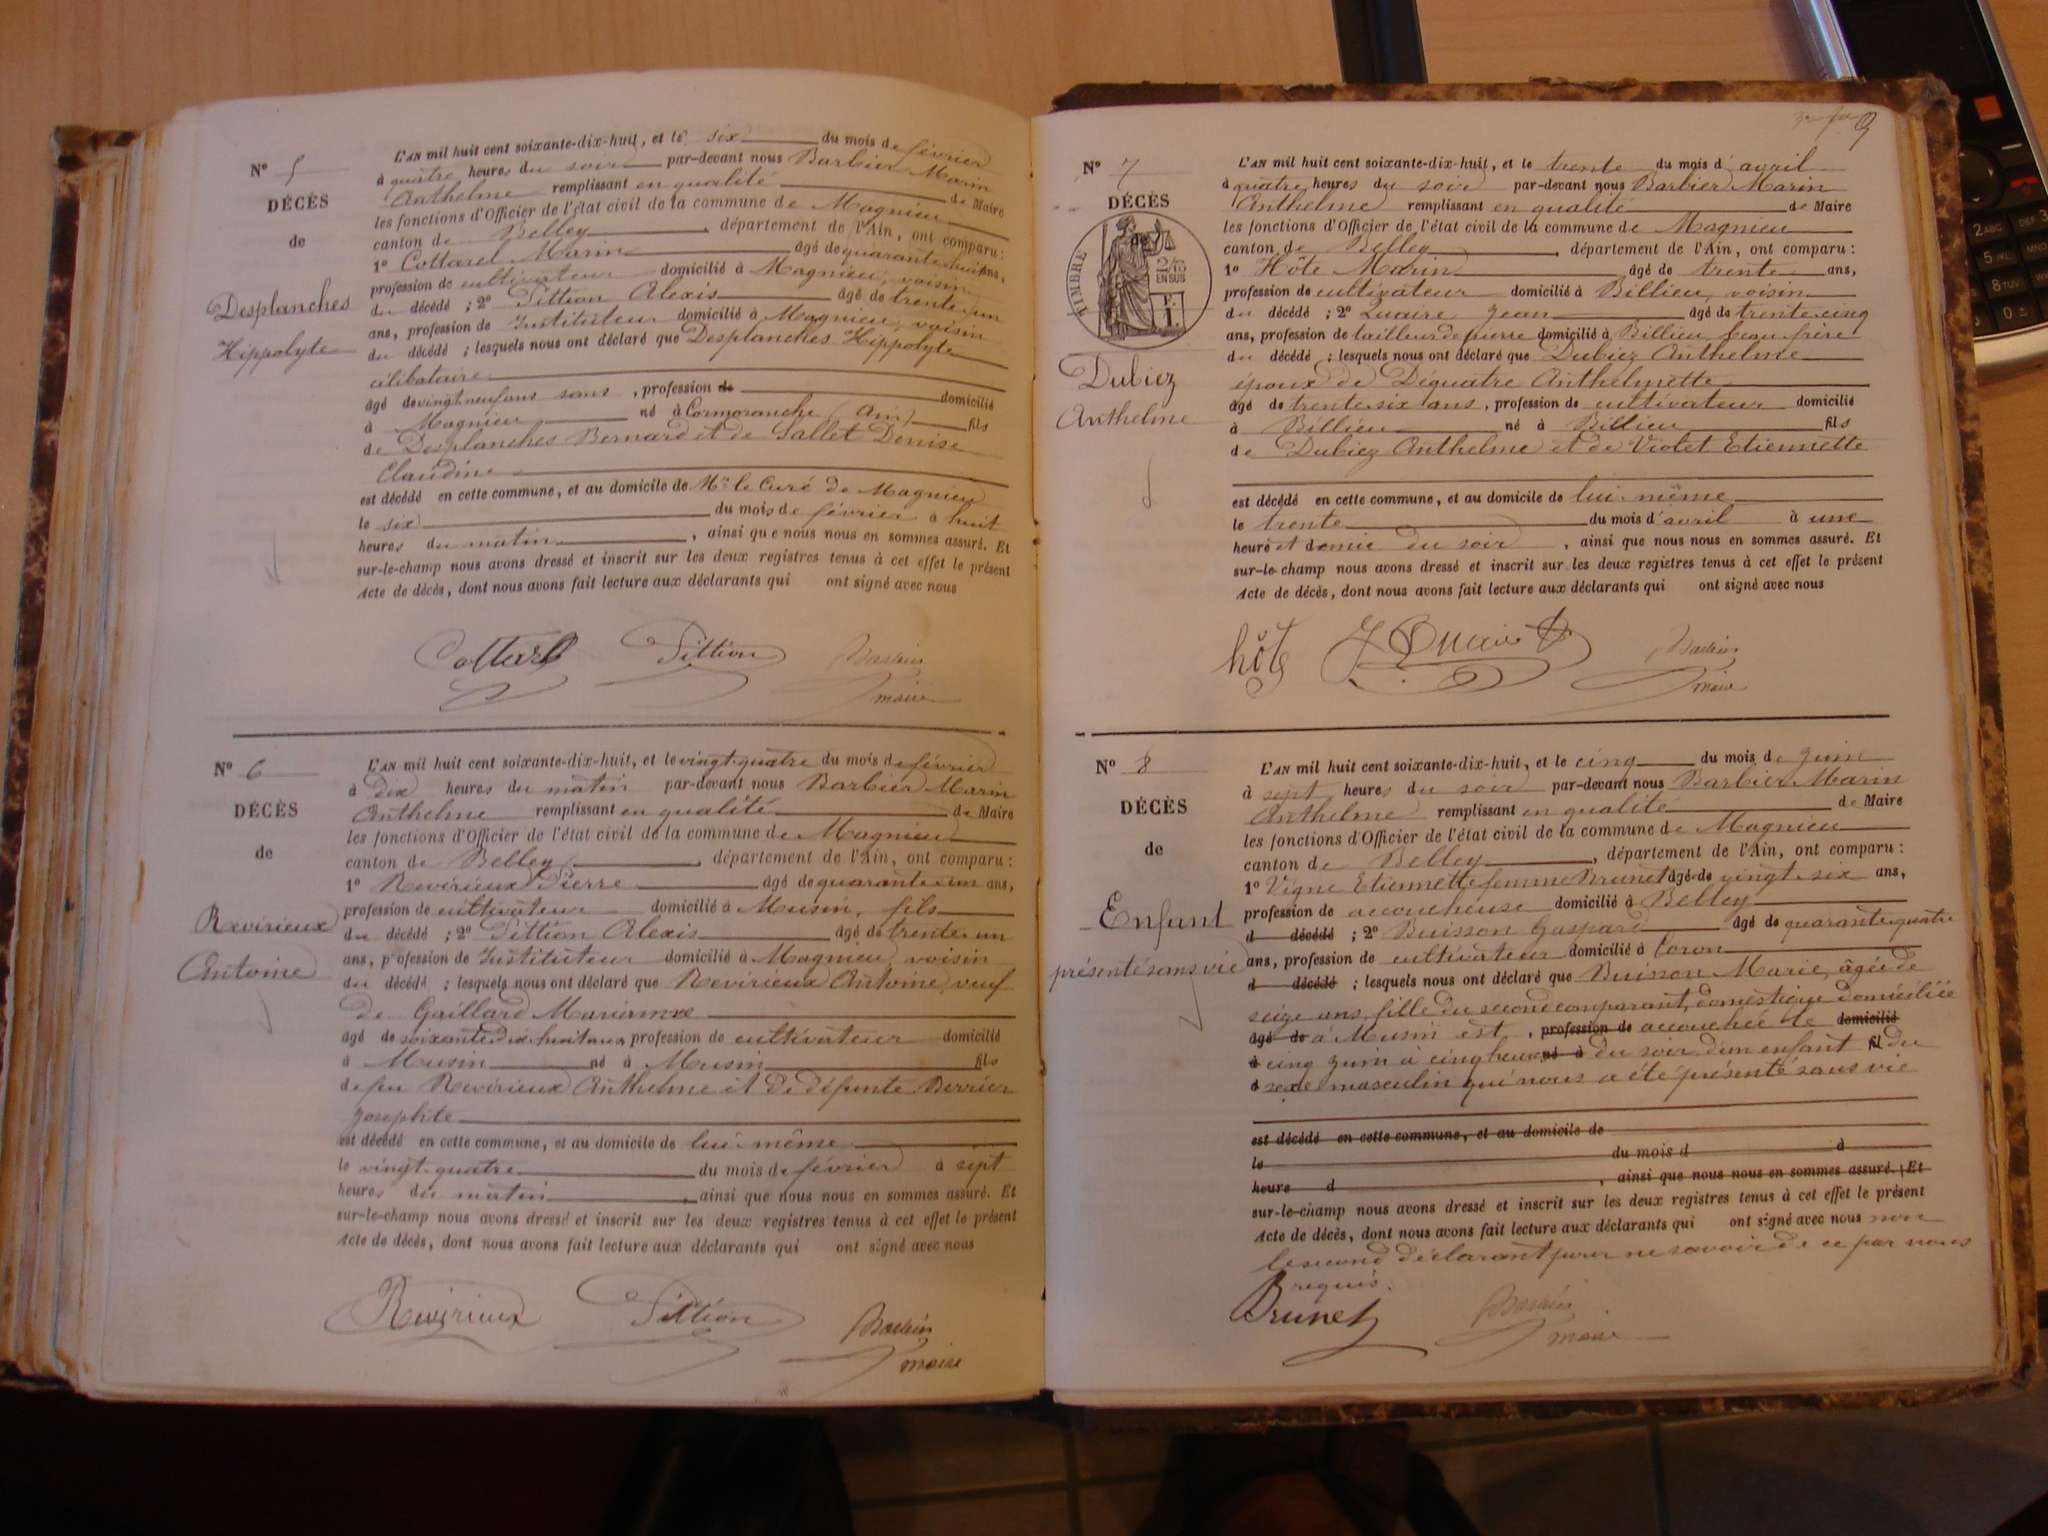 N° 5
DÉCÈS
de
Desplanches
Hippolyte
L'AN mil huit cent soixante-dix-huit, et le six du mois de février
à quatre heures du soir par-devant nous Barbier Marin
Anthelme remplissant en qualité de Maire
les fonctions d'Officier de l'état civil de la commune de Magnieu
canton de Belley, département de l'Ain, ont comparu:
1° Cottarel Marin âgé de quarante-huit ans,
profession de cultivateur domicilié à Magnieu, voisin
du décédé ; 2° Tittion Alexis âgé de trente-un
ans, profession de Instituteur domicilié à Magnieu, voisin
du décédé ; lesquels nous ont déclaré que Desplanches Hippolyte
célibataire
âgé de vingt neuf ans sans , profession de domicilié
à Magnieu né à Cormoranche (Ain) fils
de Desplanches Bernard et de Sallet Denise
Claudine
est décédé en cette commune, et au domicile de Mr le Curé de Magnieu
le six du mois de février à huit
heures du matin , ainsi que nous nous en sommes assuré. Et
sur-le-champ nous avons dressé et inscrit sur les deux registres tenus à cet effet le présent
Acte de décès, dont nous avons fait lecture aux déclarants qui ont signé avec nous
Cottarel Tittion Barbier
maire
N° 6
DÉCÈS
de
Revirieux
Antoine
L'AN mil huit cent soixante-dix-huit, et le vingt-quatre du mois de février
à dix heures du matin par-devant nous Barbier Marin
Anthelme remplissant en qualité de Maire
les fonctions d'Officier de l'état civil de la commune de Magnieu
canton de Belley, département de l'Ain, ont comparu:
1° Revirieux Pierre âgé de quarante-un ans,
profession de cultivateur domicilié à Musin, fils
du décédé ; 2° Tittion Alexis âgé de trente-un
ans, profession de Instituteur domicilié à Magnieu, voisin
du décédé ; lesquels nous ont déclaré que Revirieux Antoine, veuf
de Gaillard Marianne
âgé de soixante-dix-huit ans, profession de cultivateur domicilié
à Musin né à Musin fils
de feu Revirieux Anthelme et de défunte Berrier
Josephte
est décédé en cette commune, et au domicile de lui-même
le vingt-quatre du mois de février à sept
heures du matin , ainsi que nous nous en sommes assuré. Et
sur-le-champ nous avons dressé et inscrit sur les deux registres tenus à cet effet le présent
Acte de décès, dont nous avons fait lecture aux déclarants qui ont signé avec nous
Revirieux Tittion Barbier
maire
N° 7
DÉCÈS
de
TIMBRE
2/10
EN SUS
Dubiez
Anthelme
L'AN mil huit cent soixante-dix-huit, et le trente du mois d'avril
à quatre heures du soir par-devant nous Barbier Marin
Anthelme remplissant en qualité de Maire
les fonctions d'Officier de l'état civil de la commune de Magnieu
canton de Belley, département de l'Ain, ont comparu:
1° Hôte Marin âgé de trente ans,
profession de cultivateur domicilié à Billieu, voisin
du décédé ; 2° Luaire Jean âgé de trente-cinq
ans, profession de tailleur de pierre domicilié à Billieu, beau-frère
du décédé ; lesquels nous ont déclaré que Dubiez Anthelme
époux de Déquatre Anthelmette
âgé de trente-six ans, profession de cultivateur domicilié
à Billieu né à Billieu fils
de Dubiez Anthelme et de Violet Etiennette
est décédé en cette commune, et au domicile de lui-même
le trente du mois d'avril à une
heure et demie du soir , ainsi que nous nous en sommes assuré. Et
sur-le-champ nous avons dressé et inscrit sur les deux registres tenus à cet effet le présent
Acte de décès, dont nous avons fait lecture aux déclarants qui ont signé avec nous
hôte Barbier
maire
N° 8
DÉCÈS
de
Enfant
présenté sans vie
L'AN mil huit cent soixante-dix-huit, et le cinq du mois de Juin
à sept heures du soir par-devant nous Barbier Marin
Anthelme remplissant en qualité de Maire
les fonctions d'Officier de l'état civil de la commune de Magnieu
canton de Belley, département de l'Ain, ont comparu:
1° Vigne Etiennette femme Brunet âgée de vingt-six ans,
profession de accoucheuse domicilié à Belley
d décédé ; 2° Buisson Gaspard âgé de quarante-quatre
ans, profession de cultivateur domicilié à Coron
d décédé ; lesquels nous ont déclaré que Buisson Marie, âgée de
seize ans, fille du second comparant, domestique domiciliée
âgé de à Musin est , profession de accouchée le domicilié
à cinq juin à cinq heures né à du soir d'un enfant fil du
d sexe masculin qui nous a été présenté sans vie
est décédé en cette commune, et au domicile de
le du mois d à
heure d , ainsi que nous nous en sommes assuré. Et
sur-le-champ nous avons dressé et inscrit sur les deux registres tenus à cet effet le présent
Acte de décès, dont nous avons fait lecture aux déclarants qui ont signé avec nous non
le second déclarant pour ne savoir de ce par nous
requis.
Brunet Barbier
maire